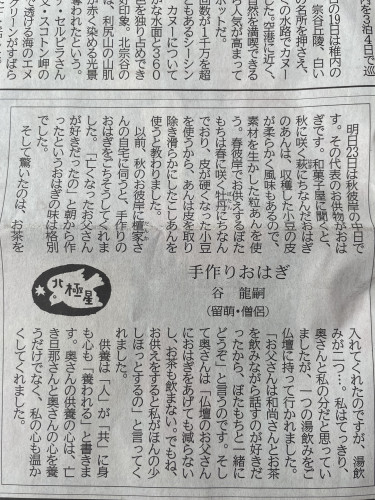 内を3泊4日で巡
の19日は稚内の
宗谷丘陵、白い
の名所を押さえ、
の水路でカヌー
した。空港に近く、
自然を満喫できる
り人気が高まって
ットだ。
回数が1千万を超
とあるシーン
カヌーについて
な水面と360
色を独り占めでき
印象。北宗谷の
、利尻山の山肌
が赤く染める光景
奪われたという。
・セルビラさん
文・スコトン岬の
海のエメ
グリーンがすばら
明日23日は秋彼岸の中日で
す。その代表のお供物がおは
ぎです。和菓子屋に聞くと、
秋に咲く萩にちなんだおはぎ
のあんは、収穫した小豆の皮
が柔らかく風味もあるので、
素材を生かした粒あんを使
う。春彼岸でお供えするぼた
もちは春に咲く牡丹にちなん
でおり、皮が硬くなった小豆
を使うから、あんは皮を取り
除き滑らかにしたこしあんを
使うと教わりました。
以前、秋のお彼岸に檀家さ
んの自宅に伺うと、手作りの
おはぎをごちそうしてくれま
した。「亡くなったお父さん
が好きだったの」と朝から作
ったというおはぎの味は格別
でした。
そして驚いたのは、お茶を
北極星
手作りおはぎ
谷 龍嗣
(留萌・僧侶)
入れてくれたのですが、湯飲
みが二つ…。私はてっきり、
奥さんと私の分だと思ってい
ましたが、一つの湯飲みをご
仏壇に持って行かれました。
「お父さんは和尚さんとお茶
を飲みながら話すのが好きだ
ったから、ぼたもちと一緒に
どうぞ」と言うのです。そし
て奥さんは「仏壇のお父さん
におはぎをあげても減らない
し、お茶も飲まない。でもね、
お供えをすると私がほんの少
しほっとするの」と言ってく
れました。
供養は「人」が「共」に身
も心も「養われる」と書きま
す。奥さんの供養の心は、亡
き旦那さんと奥さんの心を養
うだけでなく、私の心も温か
くしてくれました。